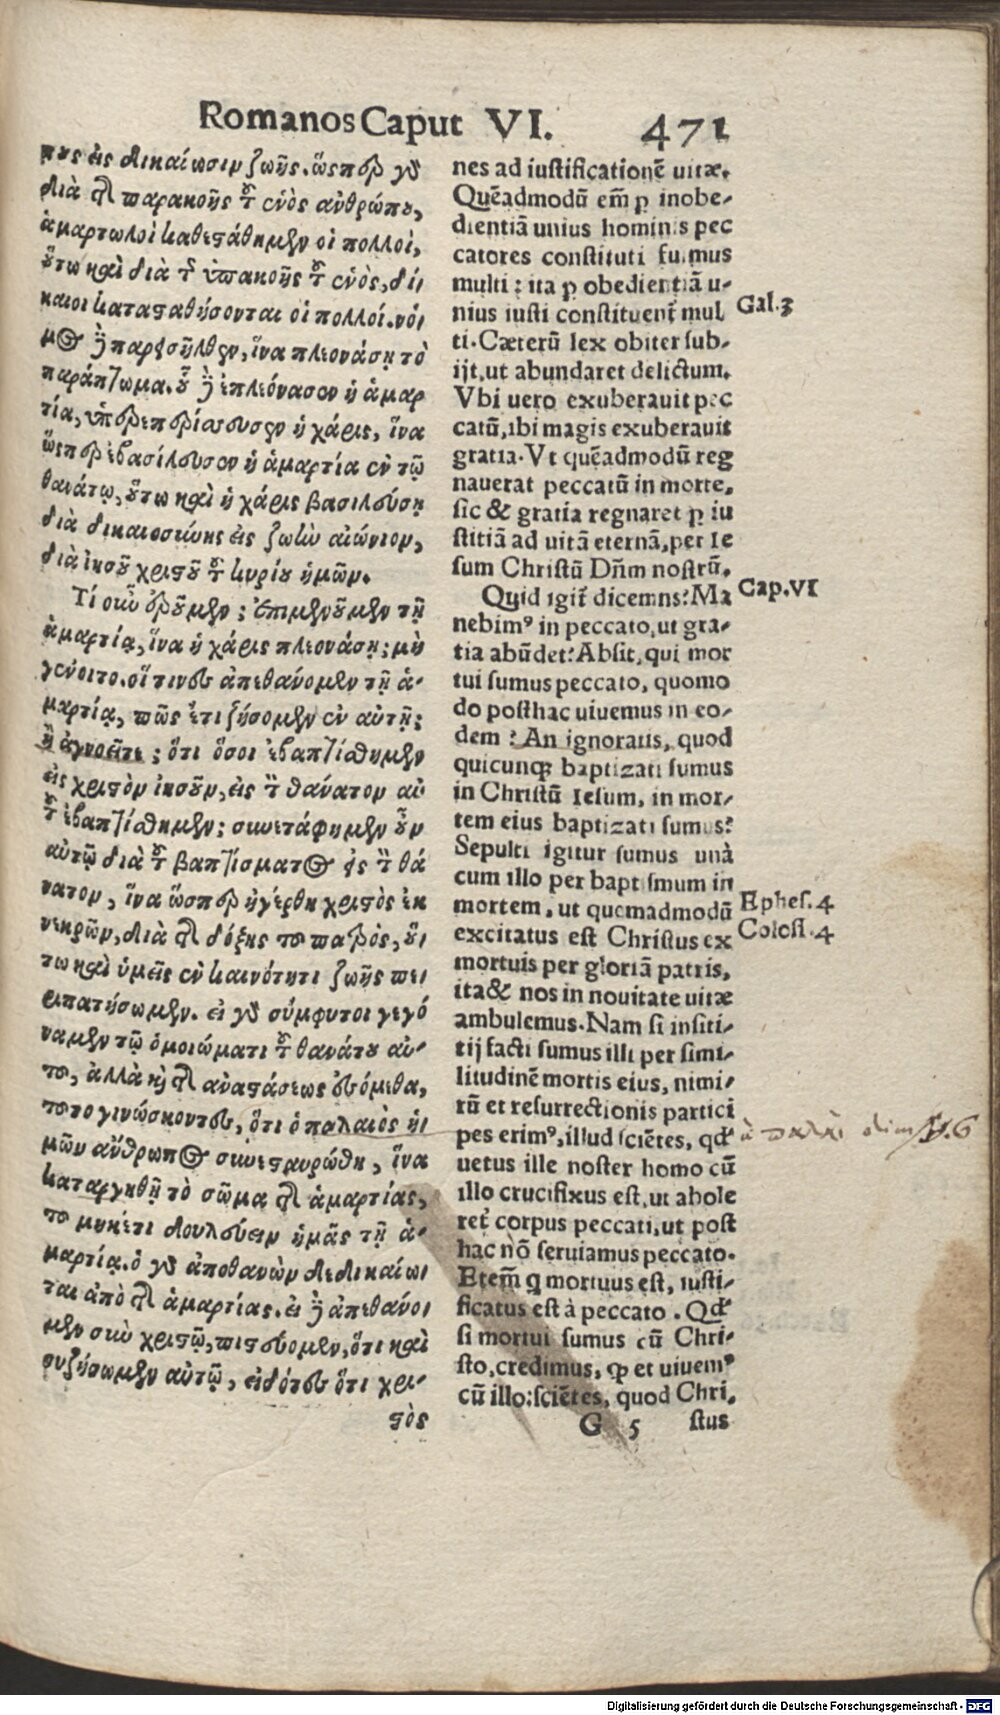 Romanos Caput VI. 471
πους εἰς δικαίωσιν ζωῆς. ὥσπερ γὸ
διὰ τῆς παρακοῆς τοῦ ἑνὸς ἀνθρώπου,
ἁμαρτωλοὶ κατεστάθημεν οἱ πολλοὶ,
οὕτω καὶ διὰ τῆς ὑπακοῆς τοῦ ἑνὸς, δί
καιοι κατασταθήσονται οἱ πολλοί. νό
μος δὲ παρεισῆλθεν, ἵνα πλεονάσῃ τὸ
παράπτωμα. οὗ δὲ ἐπλεόνασεν ἡ ἁμαρ
τία, ὑπερεπερίσσευσεν ἡ χάρις, ἵνα
ὥσπερ ἐβασίλευσεν ἡ ἁμαρτία ἐν τῷ
θανάτῳ, οὕτω καὶ ἡ χάρις βασιλεύσῃ
διὰ δικαιοσύνης εἰς ζωὴν αἰώνιον,
διὰ ἰησοῦ χριστοῦ τοῦ κυρίου ἡμῶν.
Τί οὖν ἐροῦμεν; ἐπιμενοῦμεν τῇ
ἁμαρτίᾳ, ἵνα ἡ χάρις πλεονάσῃ; μὴ
γένοιτο. οἵτινες ἀπεθάνομεν τῇ ἁ-
μαρτίᾳ, πῶς ἔτι ζήσομεν ἐν αὐτῇ;
ἢ ἀγνοεῖτε; ὅτι ὅσοι ἐβαπτίσθημεν
εἰς χριστὸν ἰησοῦν, εἰς τὸν θάνατον αὐ
τοῦ ἐβαπτίσθημεν; συνετάφημεν οὖν
αὐτῷ διὰ τοῦ βαπτίσματος εἰς τὸν θά
νατον, ἵνα ὥσπερ ἠγέρθη χριστὸς ἐκ
νεκρῶν, διὰ τῆς δόξης τοῦ πατρὸς, οὕ
τω καὶ ἡμεῖς ἐν καινότητι ζωῆς πε
ριπατήσωμεν. εἰ γὸ σύμφυτοι γεγό
ναμεν τῷ ὁμοιώματι τοῦ θανάτου αὐ-
τοῦ, ἀλλὰ καὶ τῆς ἀναστάσεως ἐσόμεθα,
τοῦτο γινώσκοντες, ὅτι ὁ παλαιὸς ἡ
μῶν ἄνθρωπος συνεσταυρώθη, ἵνα
καταργηθῇ τὸ σῶμα τῆς ἁμαρτίας,
τοῦ μηκέτι δουλεύειν ἡμᾶς τῇ ἁ-
μαρτίᾳ. ὁ γὸ ἀποθανὼν δεδικαίω
ται ἀπὸ τῆς ἁμαρτίας. εἰ δὲ ἀπεθάνο
μεν σὺν χριστῷ, πιστεύομεν, ὅτι καὶ
συζήσωμεν αὐτῷ, εἰδότες ὅτι χρι-
στὸς
nes ad iustificationẽ uitæ.
Quẽadmodũ em̃ ꝑ inobe-
dientiã unius hominis pec
catores constituti fuimus
multi: ita ꝑ obedientiã u-
nius iusti constituent̃ mul
ti. Cæterũ lex obiter sub-
ijt, ut abundaret delictum.
Vbi uero exuberauit pec
catũ, ibi magis exuberauit
gratia. Vt quẽadmodũ reg
nauerat peccatũ in morte,
sic & gratia regnaret ꝑ iu
stitiã ad uitã eternã, per Ie
sum Christũ Dñm nostrũ.
Quid igit̃ dicemns? Ma
nebimꝰ in peccato, ut gra-
tia abũdet? Absit, qui mor
tui sumus peccato, quomo
do posthac uiuemus in eo-
dem? An ignoratis, quod
quicunq; baptizati sumus
in Christũ Iesum, in mor-
tem eius baptizati sumus?
Sepulti igitur sumus unà
cum illo per baptismum in
mortem, ut quemadmodũ
excitatus est Christus ex
mortuis per gloriã patris,
ita & nos in nouitate uitæ
ambulemus. Nam si insiti-
tij facti sumus illi per simi-
litudinẽ mortis eius, nimi-
rũ et resurrectionis partici
pes erimꝰ, illud sciẽtes, qđ
uetus ille noster homo cũ
illo crucifixus est, ut abole
ret̃ corpus peccati, ut post
hac nõ seruiamus peccato.
Etem̃ q mortuus est, iusti-
ficatus est à peccato. Qđ
si mortui sumus cũ Chri-
sto, credimus, ꝙ et uiuemꝰ
cũ illo: sciẽtes, quod Chri-
G 5 stus
Gal.3
Cap.VI
Ephes.4
Coloss.4
Digitalisierung gefördert durch die Deutsche Forschungsgemeinschaft - DFG